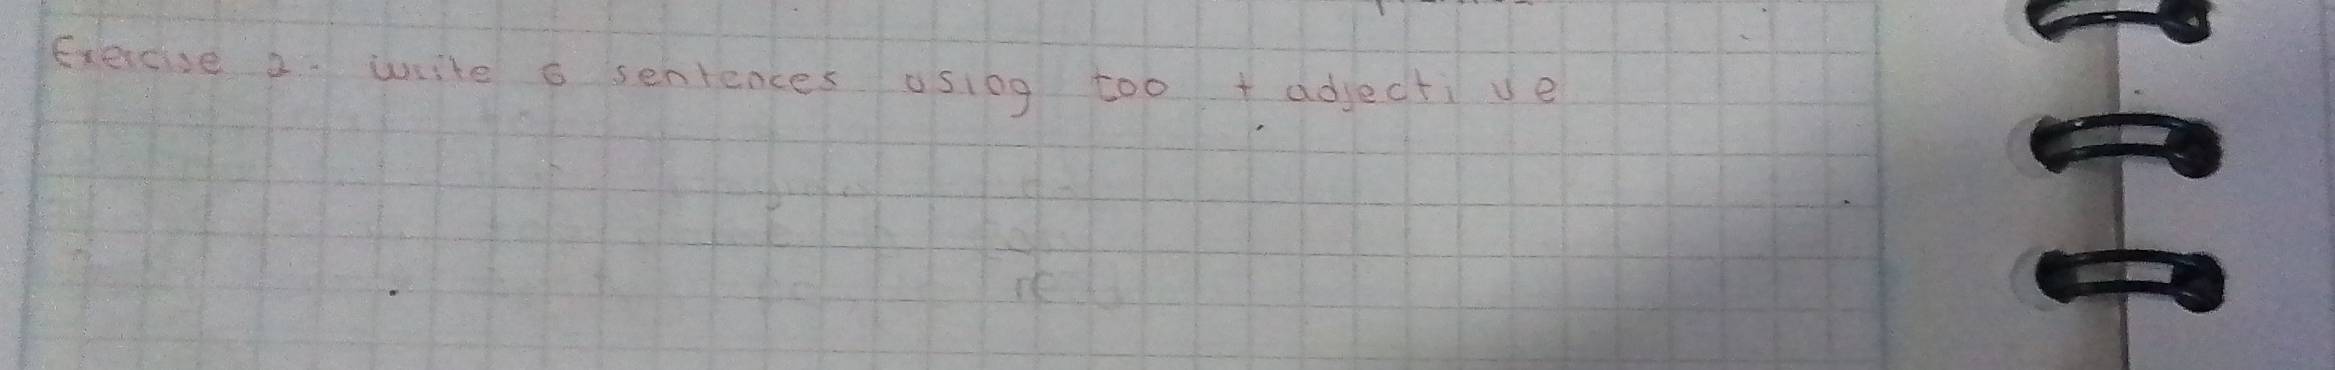 Exercise 2. write 6 sentences using too + adjective